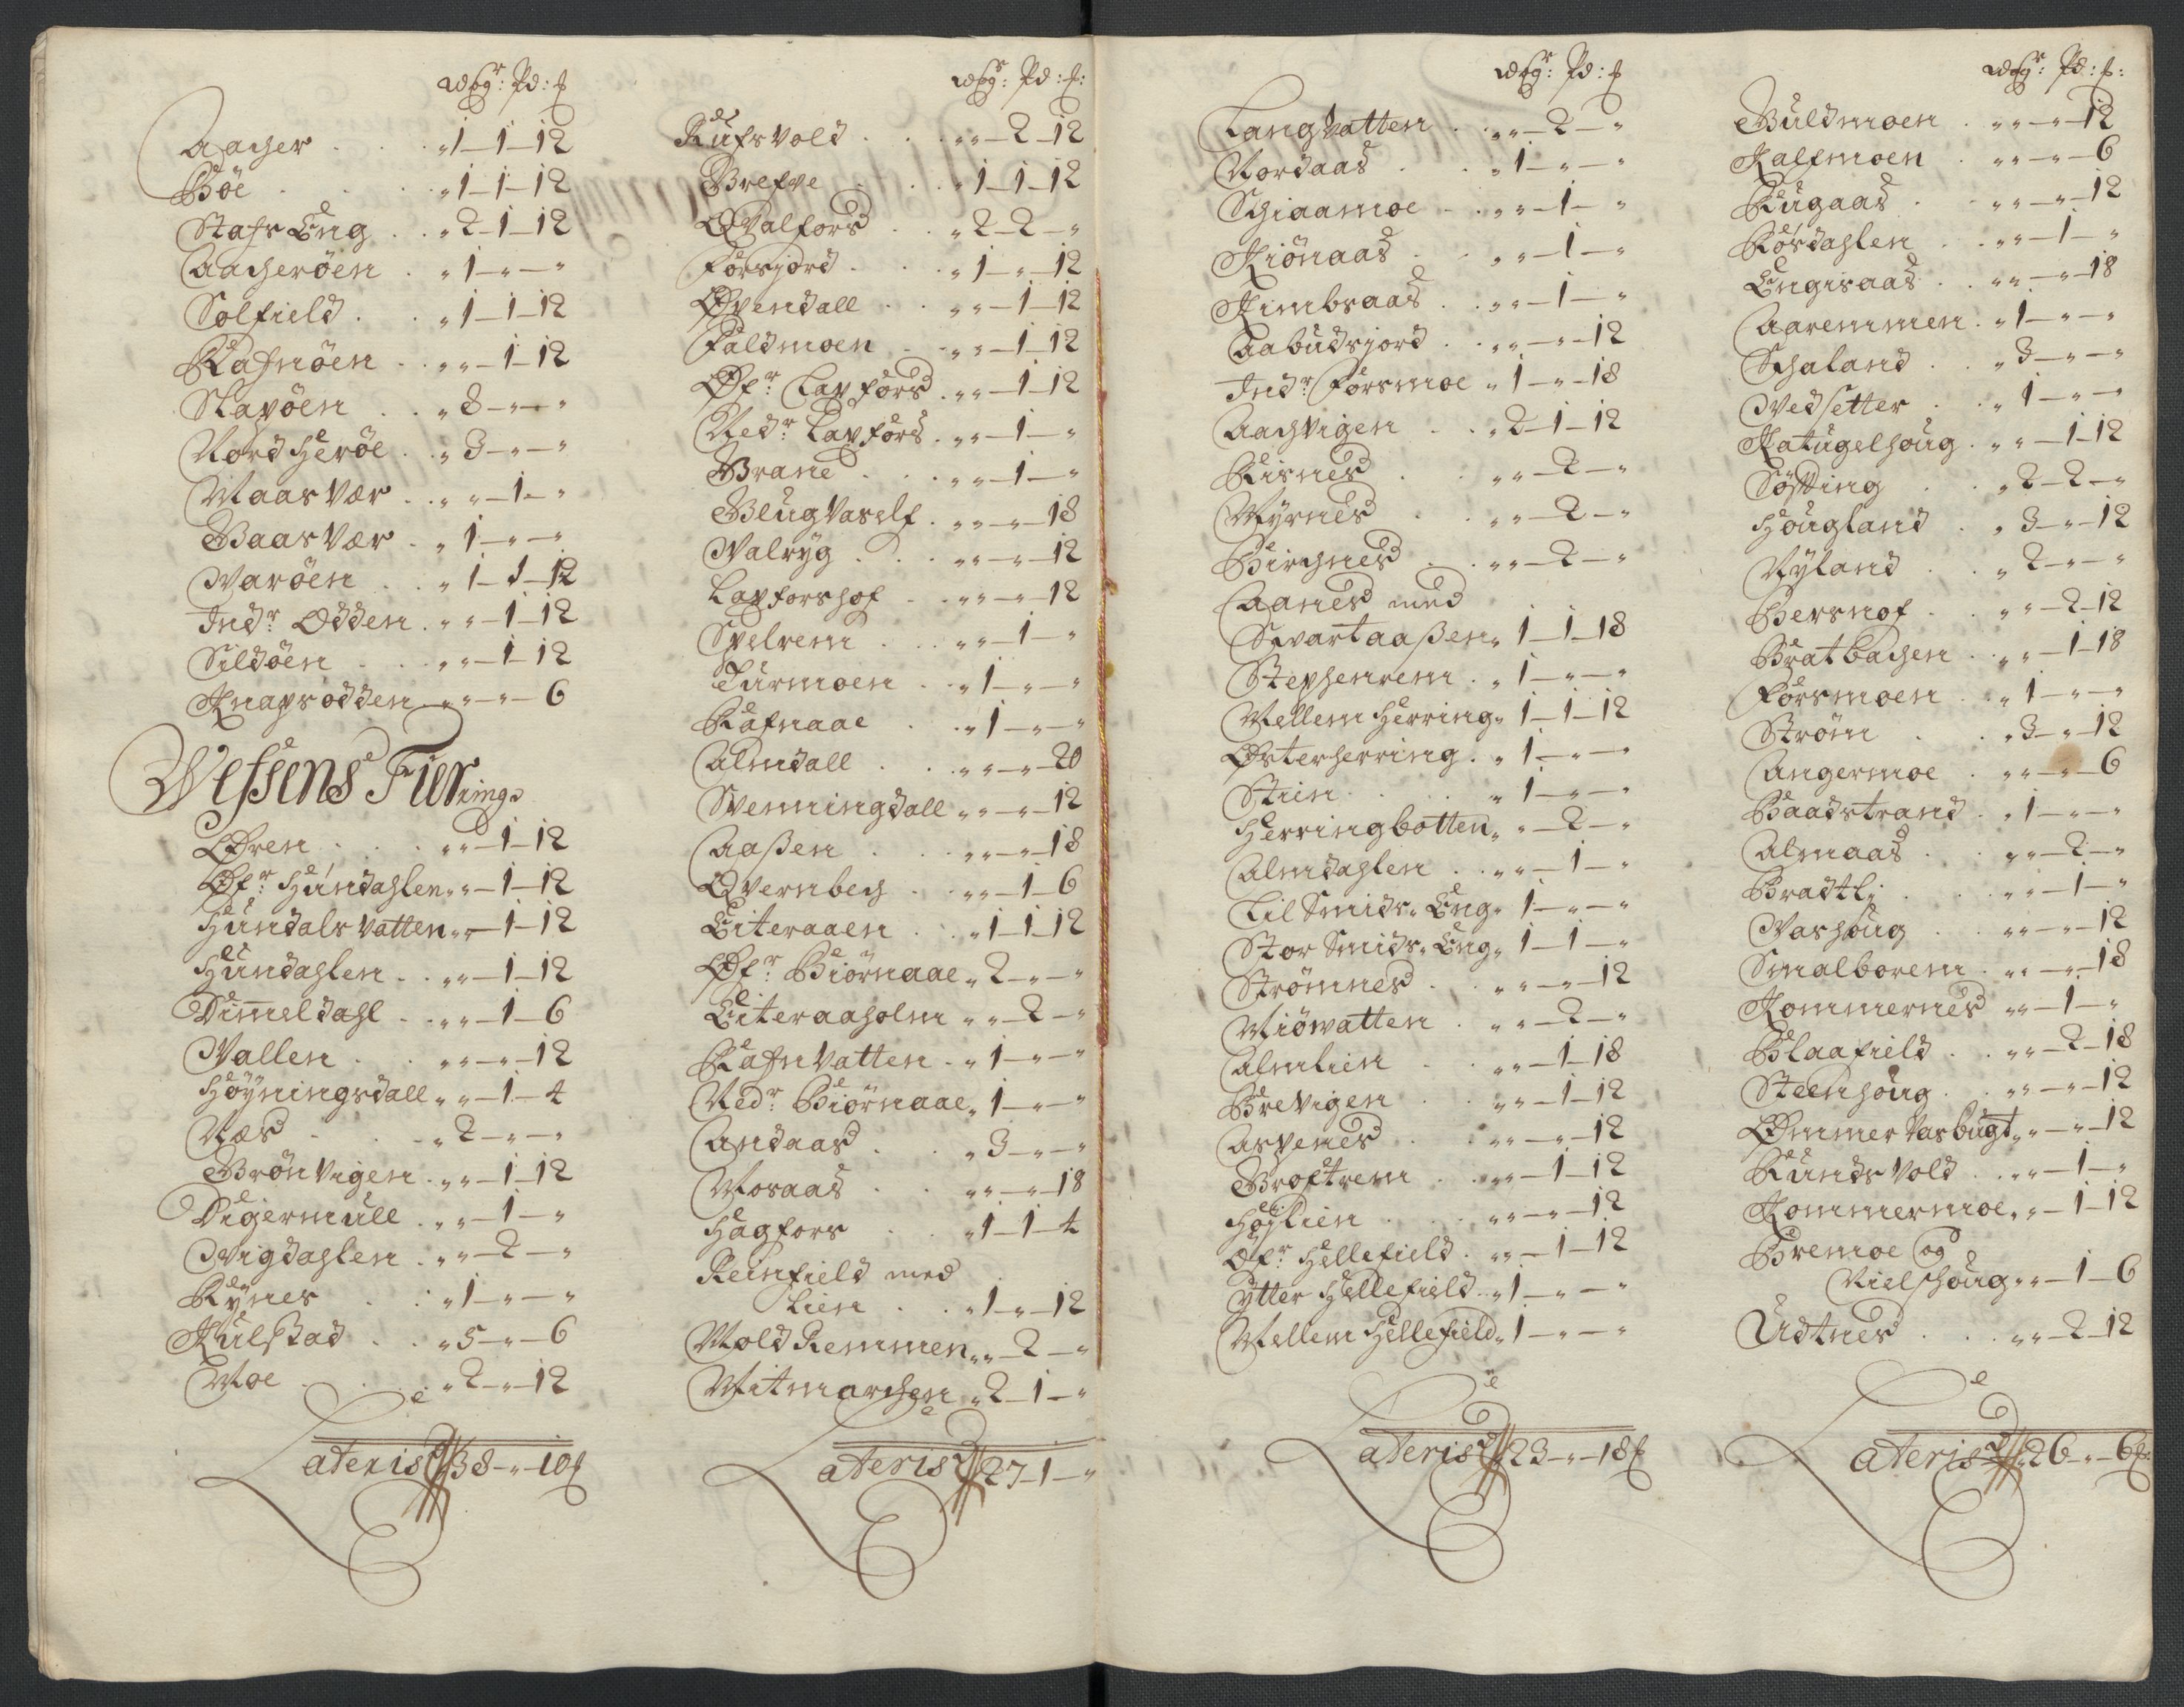 Wogr: Pd: f
Aagher . . . „ 1 - 1 - 12
Böe . . . „ 1 - 1 - 12
Stafs Eng . . „ 2 - 1 - 12
Aagheröen . „ 1 - „ - „
Solfield . . „ 1 - 1 - 12
Rafnöen . . „ „ - 1 - 12
Slapöen . . „ 8 - „ - „
Nord Heröe . „ 3 - „ - „
Maasvær . . „ „ - 1 - „
Baasvær . . „ 1 - „ - „
Waröen . . „ 1 - 1 - 12
Indr Odden . „ „ - 1 - 12
Sildöen . . „ „ - 1 - 12
Knapsodden . „ „ - „ - 6
Wefsens Fierings
Øren . . . „ „ - 1 - 12
Øfr: Hundahlen „ „ - 1 - 12
Hundals vatten „ „ - 1 - 12
Hundahlen . . „ „ - 1 - 12
Dimmeldahl . . „ „ - 1 - 6
Wallen . . „ „ - „ - 12
Höyningsdall „ „ - 1 - 4
Næs . . . „ 2 - „ - „
Brönvigen . „ „ - 1 - 12
Digermull . „ „ - 1 - „
Vigdahlen . „ „ - 2 - „
Rynes . . „ 1 - „ - „
Kulstad . . „ 5 - „ - 6
Moe . . . „ 2 - „ - 12
Lateris 38 - „ - 10 f
Wogr: Pd: f:
Rufsvold . . . „ „ - 2 - 12
Brefve . . . „ 1 - 1 - 12
Qvalfors . . „ 2 - 2 - „
Forsjord . . . „ 1 - „ - 12
Øvendall . . „ „ - 1 - 12
Faldmoen . . „ „ - 1 - 12
Øfr: Lapfors . „ „ - 1 - 12
Nedr: Lapfors . „ „ - 1 - „
Brane . . . „ „ - 1 - „
Blugvaself . „ „ - „ - 18
Valryg . . . „ „ - „ - 12
Lapforshof . . „ „ - „ - 12
Svelrem . . „ „ - 1 - „
Turmoen . . „ 1 - „ - „
Rafnaae . . „ 1 - „ - „
Almdall . . „ „ - „ - 20
Svenningdall „ „ - „ - 12
Aaßen . . „ „ - „ - 18
Qvernbech . „ „ - 1 - 6
Eiteraaen . „ 1 - 1 - 12
Øfr Biörnaae „ 2 - „ - „
Eiteraaholm „ „ - 2 - „
Rafnvatten . „ 1 - „ - „
Nedr: Biörnaae „ 1 - „ - „
Andaas . . „ 3 - „ - „
Mosaas . . „ „ - „ - 18
Hagfors . . „ 1 - 1 - 4
Reinfield med
Lien . . „ 1 - „ - 12
Mold Remmen „ „ - 2 - „
Mitmarchen „ 2 - 1 - „
Lateris 27 - 1 - „
Wogr: Pd: f
Langvatten . „ „ - 2 - „
Nordaas . . „ 1 - „ - „
Schiaamoe . „ „ - 1 - „
Kiönaas . . „ „ - 1 - „
Kimbsaas . „ „ - 1 - „
Aabudsjord . „ „ - „ - 12
Indr: Forsmoe „ 1 - „ - 18
Aachvigen . . „ 2 - 1 - 12
Risnes . . „ „ - 2 - „
Myrnes . . „ „ - 2 - „
Birchnes . . „ „ - 2 - „
Aanes med
Svartaaßen „ 1 - 1 - 18
Stephenrem . „ 1 - „ - „
Mellem Herring „ 1 - 1 - 12
Østerherring . „ 1 - „ - „
Stien . . . „ 1 - „ - „
Herringbotten „ „ - 2 - „
Almdahlen . „ „ - 1 - „
Lil Smids Eng „ 1 - „ - „
Stor Smids Eng „ 1 - 1 - „
Strömnes . . „ „ - „ - 12
Miöwatten . „ „ - 2 - „
Almlien . . „ „ - 1 - 18
Brevigen . . „ „ - 1 - 12
Aspenes . . „ „ - „ - 12
Broftrem . . „ „ - 1 - 12
Höjlien . . „ „ - „ - 12
Øfr Hellefield . „ „ - 1 - 12
Ytter Hellefield . „ 1 - „ - „
Mellem Hellefield „ 1 - „ - „
Lateris 23 - „ - 18 f
Wogr: Pd: f:
Buldmoen . „ „ - „ - 12
Kalfmoen . „ „ - „ - 6
Rugaas . . „ „ - „ - 12
Rösdahlen . „ „ - 1 - „
Engisaas . . „ „ - „ - 18
Aaremmen . „ 1 - „ - „
Schaland . . „ 3 - „ - „
Vedsetter . . „ 1 - „ - „
Katugelhoug . „ „ - 1 - 12
Søfting . . „ 2 - 2 - „
Hougland . . „ 3 - „ - 12
Nyland . . „ 2 - „ - „
Hersnof . . „ „ - 2 - 12
Bratbachen . „ „ - 1 - 18
Forsmoen . . „ 1 - „ - „
Ström . . „ 3 - „ - 12
Angermoe . „ „ - „ - 6
Baadstrand . „ 1 - „ - „
Almaas . . „ „ - 2 - „
Bradtli . . „ „ - 1 - „
Vashoug . . „ „ - „ - 12
Smalborem . „ „ - „ - 18
Kommernes „ „ - 1 - „
Blaafield . . „ „ - 2 - 18
Steenhoug . „ „ - „ - 12
Ømmer Vasbugt „ „ - „ - 12
Rundsvold . . „ „ - 1 - „
Kommermoe „ „ - 1 - 12
Bremoe og
Nielshoug „ „ - 1 - 6
Udtnes . . „ „ - 2 - 12
Lateris 26 - „ - 6 f